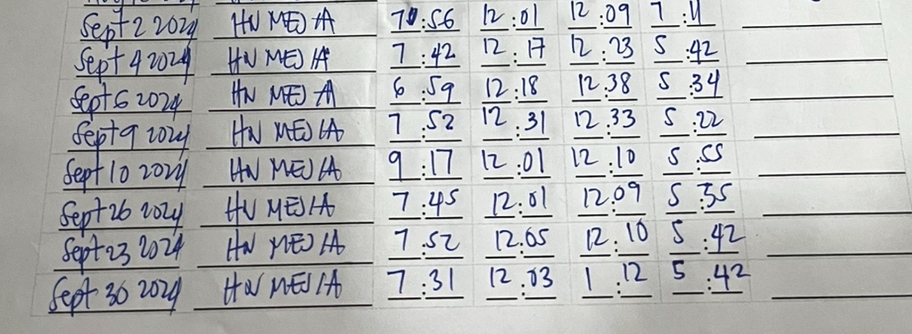 Sept 2 2024 HN MEDIA 7:56 12:01 12:09 7:11
Sept 4 2024 HN MEDIA 7:42 12:17 12:23 5:42
Sept 6 2024 HN MEDIA 6:59 12:18 12:38 5:34
Sept 9 2024 HN MEDIA 7:52 12:31 12:33 5:22
Sept 10 2024 HN MEDIA 9:17 12:01 12:10 5:55
Sept 26 2024 HN MEDIA 7:45 12:01 12:09 5:35
Sept 23 2024 HN MEDIA 7:52 12:05 12:10 5:42
Sept 30 2024 HN MEDIA 7:31 12:03 1:12 5:42